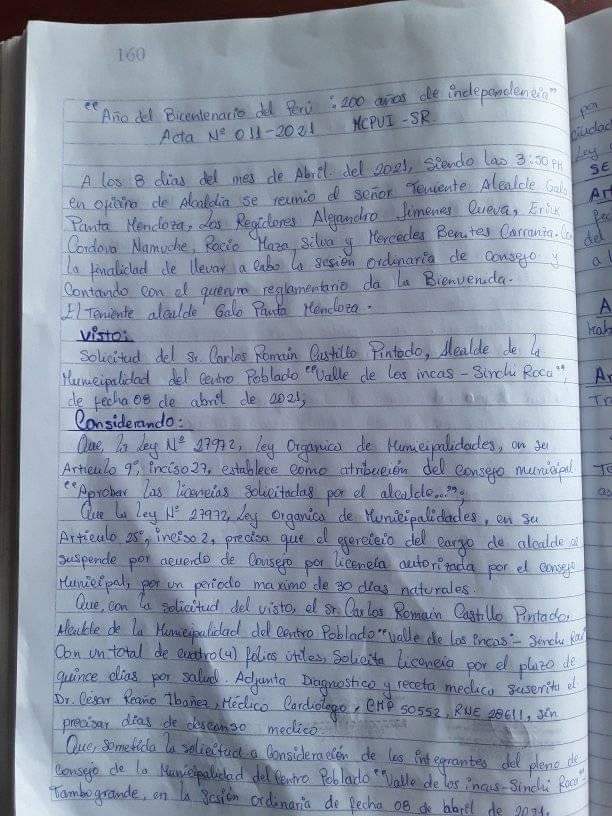 160
"Año del Bicentenario del Perú : 200 años de independencia"
Acta Nº 011-2021 MCPVI-SR.
A los 8 dias del mes de Abril del 2021, siendo las 3:50 PM
en oficina de Alcaldia se reunio el señor Teniente Alcalde Galo
Panta Mendoza, Los Regidores Alejandro Jimenes Cueva, Erick
Cordova Namuche, Rocio Maza Silva y Mercedes Benites Carranza. Con
la finalidad de llevar a cabo la sesión ordinaria de consejo y
Contando con el quorum reglamentario da la Bienvenida.
El Teniente alcalde Galo Panta Mendoza.
Visto:
Solicitud del Sr. Carlos Romain Castillo Pintado, Alcalde de la
Municipalidad del Centro Poblado "Valle de los incas - Sinchi Roca",
de fecha 08 de abril de 2021,
Considerando:
Que, la Ley Nº 27972, Ley Organica de Municipalidades, en su
Articulo 9º, inciso 27, establece como atribución del consejo municipal
"Aprobar las licencias solicitadas por el alcalde...";
Que la Ley Nº 27972, Ley Organica de Municipalidades, en su
Articulo 25º, inciso 2, precisa que el ejercicio del cargo de alcalde se
suspende por acuerdo de Consejo por licencia autorizada por el consejo
Municipal, por un periodo maximo de 30 dias naturales.
Que, con la solicitud del visto, el Sr. Carlos Romain Castillo Pintado,
Alcalde de la Municipalidad del Centro Poblado "Valle de los incas - Sinchi Roca"
Con un total de cuatro (4) folios útiles, Solicita Licencia por el plazo de
quince dias por salud. Adjunta Diagnostico y receta medica suscrita el
Dr. César Reaño Ibañez, Médico Cardiologo, CMP 50552, RNE 28611, sin
precisar dias de descanso medico.
Que, sometida la solicitud a Consideración de los integrantes del pleno de
Consejo de la Municipalidad del Centro Poblado "Valle de los incas - Sinchi Roca" -
Tambogrande, en la Sesión Ordinaria de fecha 08 de abril de 2021,
por
ciudad
Ley
SE
del
a l
A
Hab
Ar
Tr